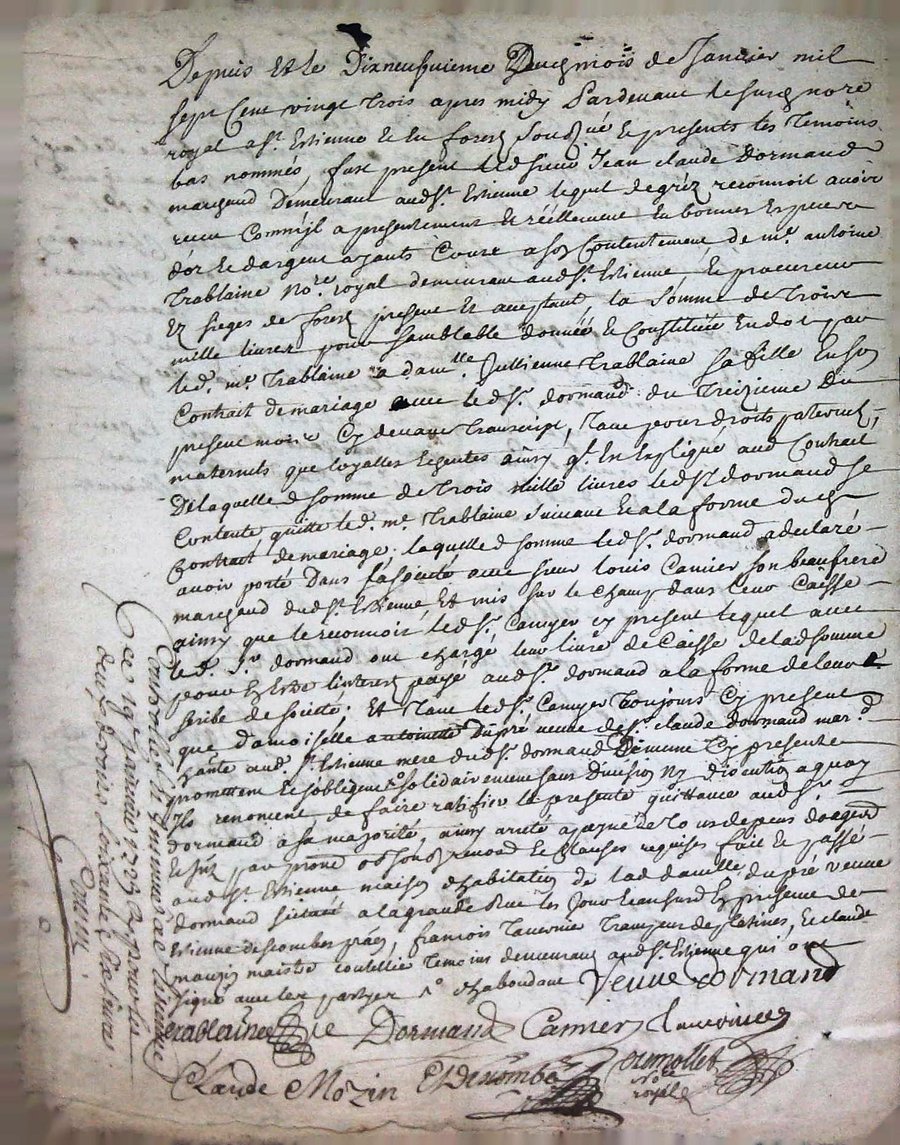 Depuis Et le Dixneufvieme Dudt mois de Janvier mil
sept Cent vingt trois apres midy Pardevant le sur No.re
royal a St. Estienne En forez sousné & presents les Temoins
bas nommés, fust present led sieur Jean Claude Dormand
marchand Demeurant aud St. Estienne lequel de gréz reconnoit avoir
receu Comm'jl a presentement Et réellement En bonnes Especes
d'or & d'argent ayants Cours a son Contentement de me. antoine
Trablaine No.re royal demeurant aud St. Estienne & procureur
Ez sieges de forez present Et acceptant la somme de Trois
mille livres pour semblable donnée & Constituée En dot par
led. me. Trablaine a damlle. Jullienne Trablaine sa fille En son
Contrait de mariage avec led St. dormand du Treizieme Du
present mois Cy devant Transcript, Tant pour droits paternels,
maternels que loyalles Escheutes ainsy qt. En Explique aud Contrait,
De laquelle d somme de Trois mille livres led St dormand se
Contente, quitte led. me. Trablaine suivant & a la forme dud
Contrait de mariage; laquelle d somme led St. dormand a declaré
avoir porté Dans la societé avec sieur louis Camier son beaufrere
marchand dud St. Estienne, Et mis sur le champ dans leur Caisse
ainsy que le reconnoit led St. Camyer cy present lequel avec
led. Sr. dormand ont chargé leur livre de Caisse de lad somme
pour En Estre l'interest payé aud St. dormand a la forme de leur
scribe de societé. Et Tant led St. Camyer Toujours Cy present
que damoiselle antoinette Dupré veuve de St. claude dormand mar.d
aud St. Estienne mere dud St. dormand Cy presente
promettent & s'obligent solidairement sans Division Ny discution a quoy
Ils renoncent, de faire ratifier la presente quittance aud Sr.
dormand a sa majorité, ainsy a peyne de Tous depens
& renond & Clauses requises fait & passé
aud St. Estienne maison d'habitation de lad damlle. dupré veuve
dormand scituée a la grande Rue les jour En presence de
Estienne descombes, françois Tavernier de platines, & claude
mozin maistre coutellie Temoins demeurants aud St. Estienne qui ont
signé avec les partyes Veuve dormand
Trablaine Dormand Camier Tavernier
Claude Mozin E Descombe Dumollet
No.re
royal
Controllé a St Estienne
ce 19e janvier 1723
livres